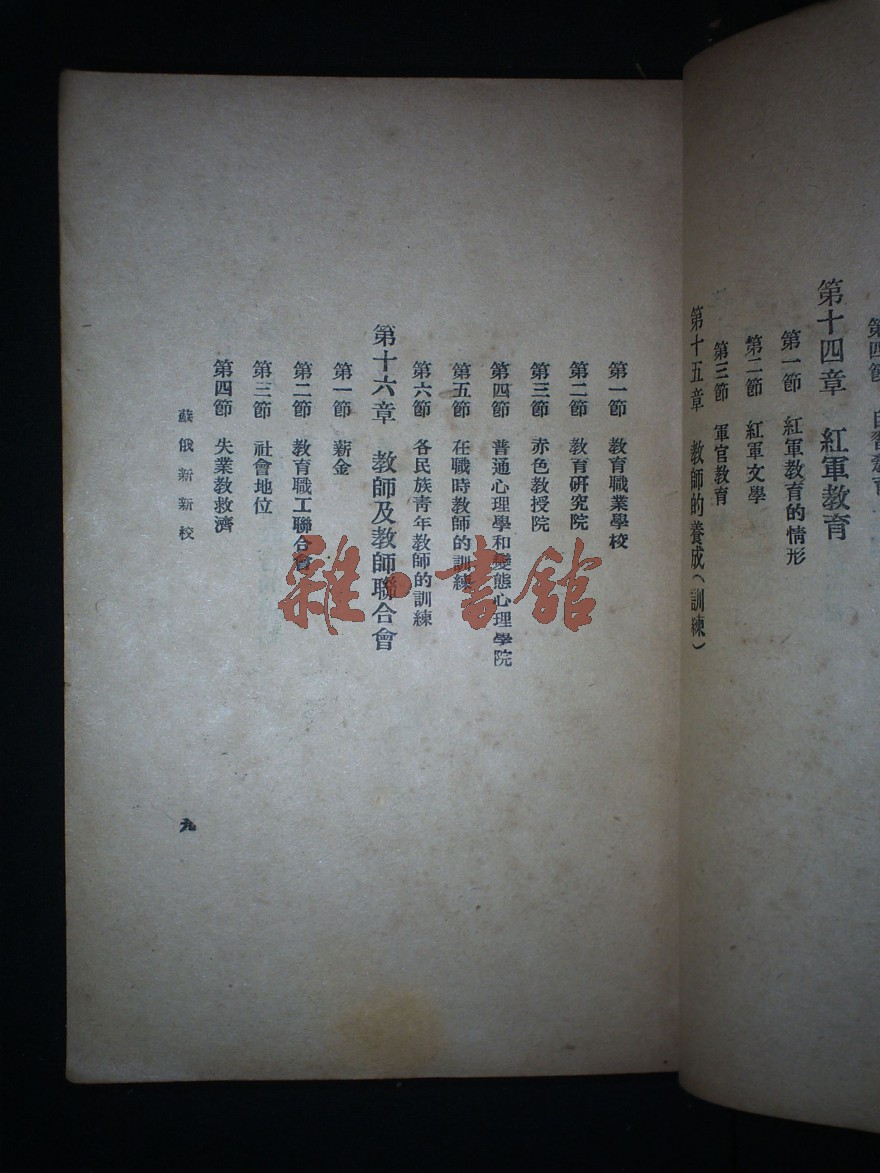 第十四章　紅軍教育
第一節　紅軍教育的情形
第二節　紅軍文學
第三節　軍官教育
第十五章　教師的養成（訓練）
第一節　教育職業學校
第二節　教育研究院
第三節　赤色教授院
第四節　普通心理學和變態心理學院
第五節　在職時教師的訓練
第六節　各民族靑年教師的訓練
第十六章　教師及教師聯合會
第一節　薪金
第二節　教育職工聯合會
第三節　社會地位
第四節　失業教救濟
蘇俄新新校
九
雜·書館